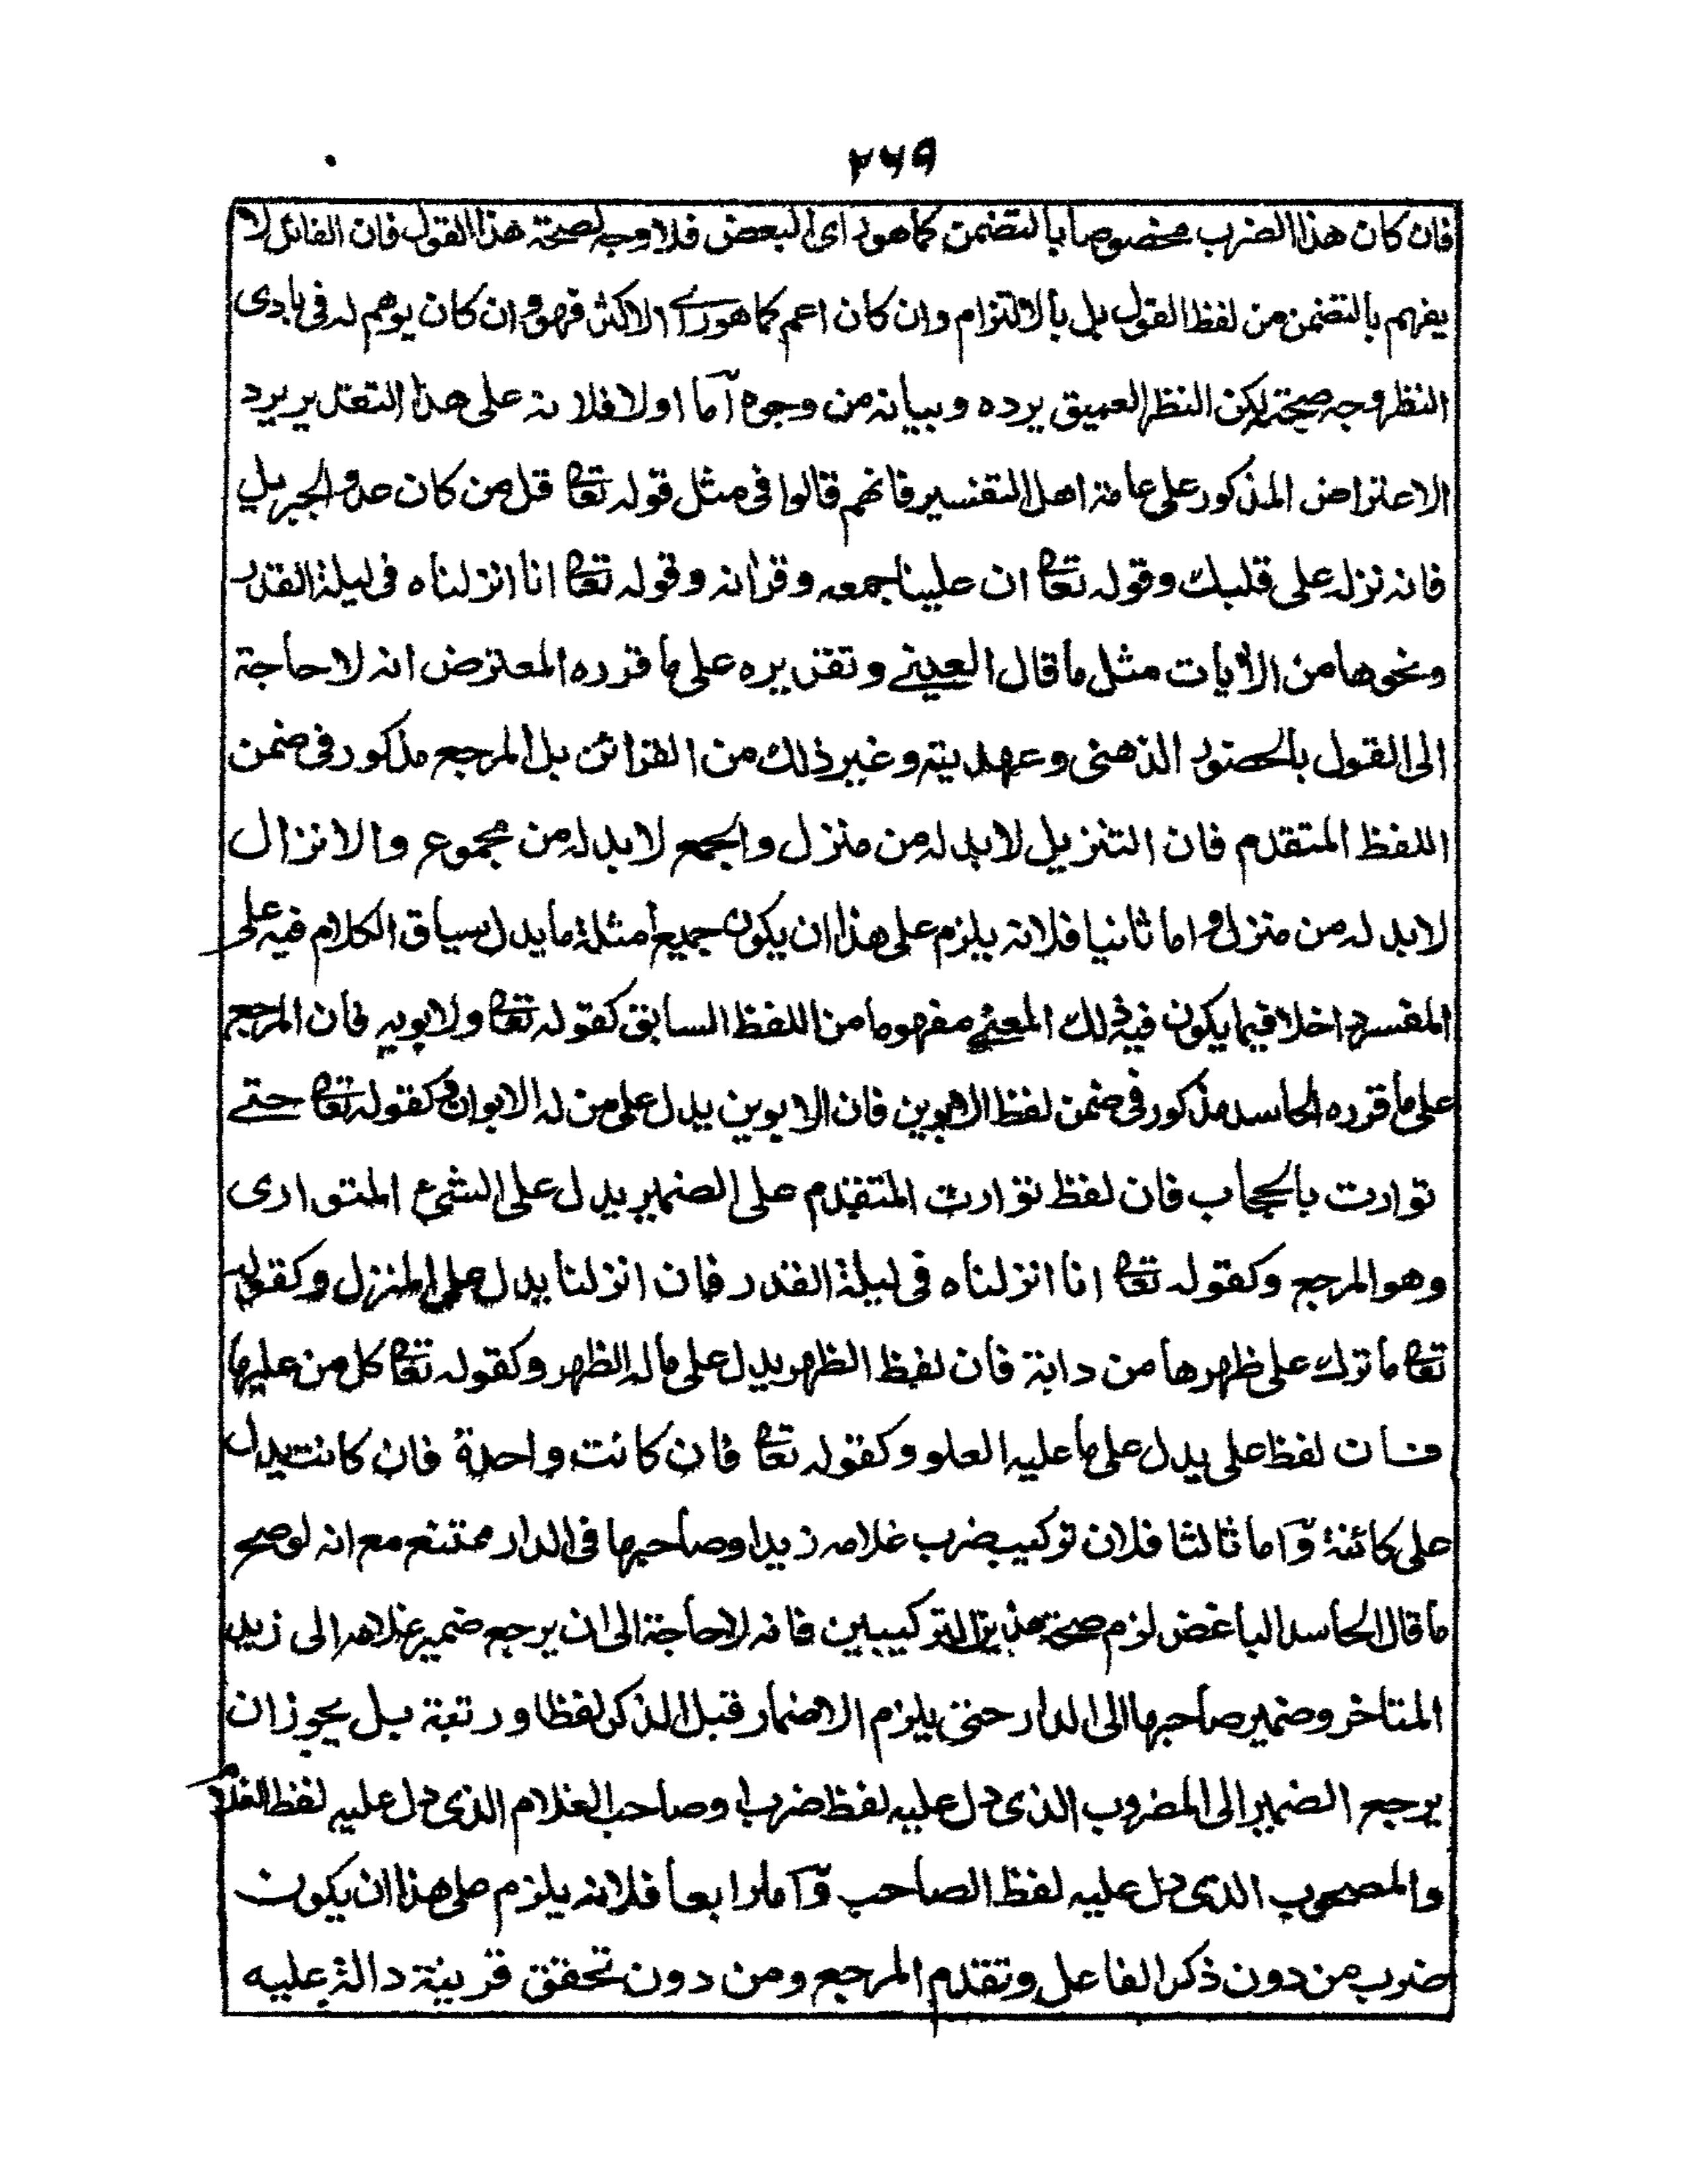 ٢٦٩
فان كان هذا الضرب مخصوصا بالتضمن كما هو راى البعض فلا وجه لصحة هذا القول فان القائل لا
يفهم بالتضمن من لفظ القول بل بالالتزام وان كان اعم كما هو راے الاكثر فهو وان كان يوهم له فى بادى
النظر وجه صحة لكن النظر العميق يرده وبيانه من وجوه آما اولا فلانه على هذا التقدير يرد
الاعتراض المذكور على عامة اهل التفسير فانهم قالوا فى مثل قوله تعا قل من كان عدوا لجبريل
فانه نزله على قلبك وقوله تعا ان علينا جمعه وقرانه وقوله تعا انا انزلناه فى ليلة القدر
ونحوها من الأيات مثل ما قال العينے وتقريره على ما قرره المعترض انه لا حاجة
الى القول بالحضور الذهنى وعهديته وغير ذلك من القرائن بل المرجع مذكور فى ضمن
اللفظ المتقدم فان التنزيل لابد له من منزل والجمع لابد له من مجموع والانزال
لابد له من منزل واما ثانيا فلانه يلزم على هذا ان يكون جميع أمثلة ما يدل سياق الكلام فيه على
المفسر داخلا فيما يكون فيه ذلك المعنے مفهوما من اللفظ السابق كقوله تعا ولابويه فان المرجع
على ما قرره الحاسد مذكور فى ضمن لفظ الابوين فان الابوين يدل على من له الابوان وكقوله تعا حتے
توارت بالحجاب فان لفظ توارت المتقدم على الضمير يدل على الشئ المتوارى
وهو المرجع وكقوله تعا انا انزلناه فى ليلة القدر فان انزلنا يدل على المنزل وكقوله
تعا ما ترك على ظهرها من دابة فان لفظ الظهر يدل على ما له الظهر وكقوله تعا كل من عليها
فان لفظ على يدل على ما عليه العلو وكقوله تعا فان كانت واحدة فان كانت يدل
على كائنة وآما ثالثا فلان تركيب ضرب غلامه زيدا وصاحبها فى الدار ممتنع مع انه لو صح
ما قال الحاسد الباغض لزم صحة هذين التركيبين فانه لا حاجة الى ان يرجع ضمير غلامه الى زيد
المتاخر وضمير صاحبها الى الدار حتى يلزم الاضمار قبل الذكر لفظا ورتبة بل يجوز ان
يرجع الضمير الى المضروب الذى دل عليه لفظ ضرب او صاحب الغلام الذى دل عليه لفظ الغلام
والمصحوب الذى دل عليه لفظ الصاحب وآما رابعا فلانه يلزم على هذا ان يكون
ضرب من دون ذكر الفاعل وتقدم المرجع ومن دون تحقق قرينة دالة عليه